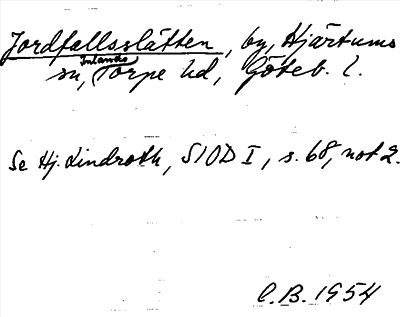 Jordfallsslätten, by, Hjärtums
sn, Inlands Torpe hd, Göteb. l.
Se Hj. Lindroth, SIOD I, s. 68, not 2.
C.B. 1954